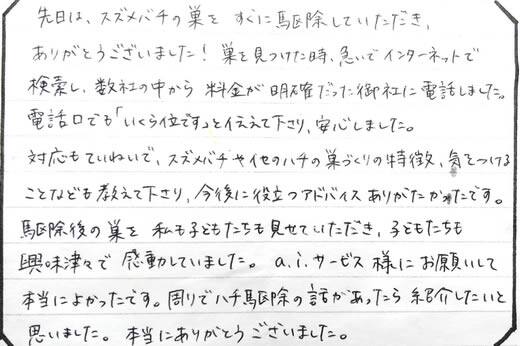 先日は、スズメバチの巣を すぐに駆除していただき、
ありがとうございました！ 巣を見つけた時、急いでインターネットで
検索し、数社の中から 料金が明確だった御社に電話しました。
電話口でも「いくら位です」と伝えて下さり、安心しました。
対応もていねいで、スズメバチや他のハチの巣づくりの特徴、気をつける
ことなども教えて下さり、今後に役立つアドバイスありがたかったです。
駆除後の巣を 私も子どもたちも見せていただき、子どもたちも
興味津々で 感動していました。 a.i.サービス 様にお願いして
本当によかったです。周りでハチ駆除の話があったら 紹介したいと
思いました。 本当にありがとうございました。